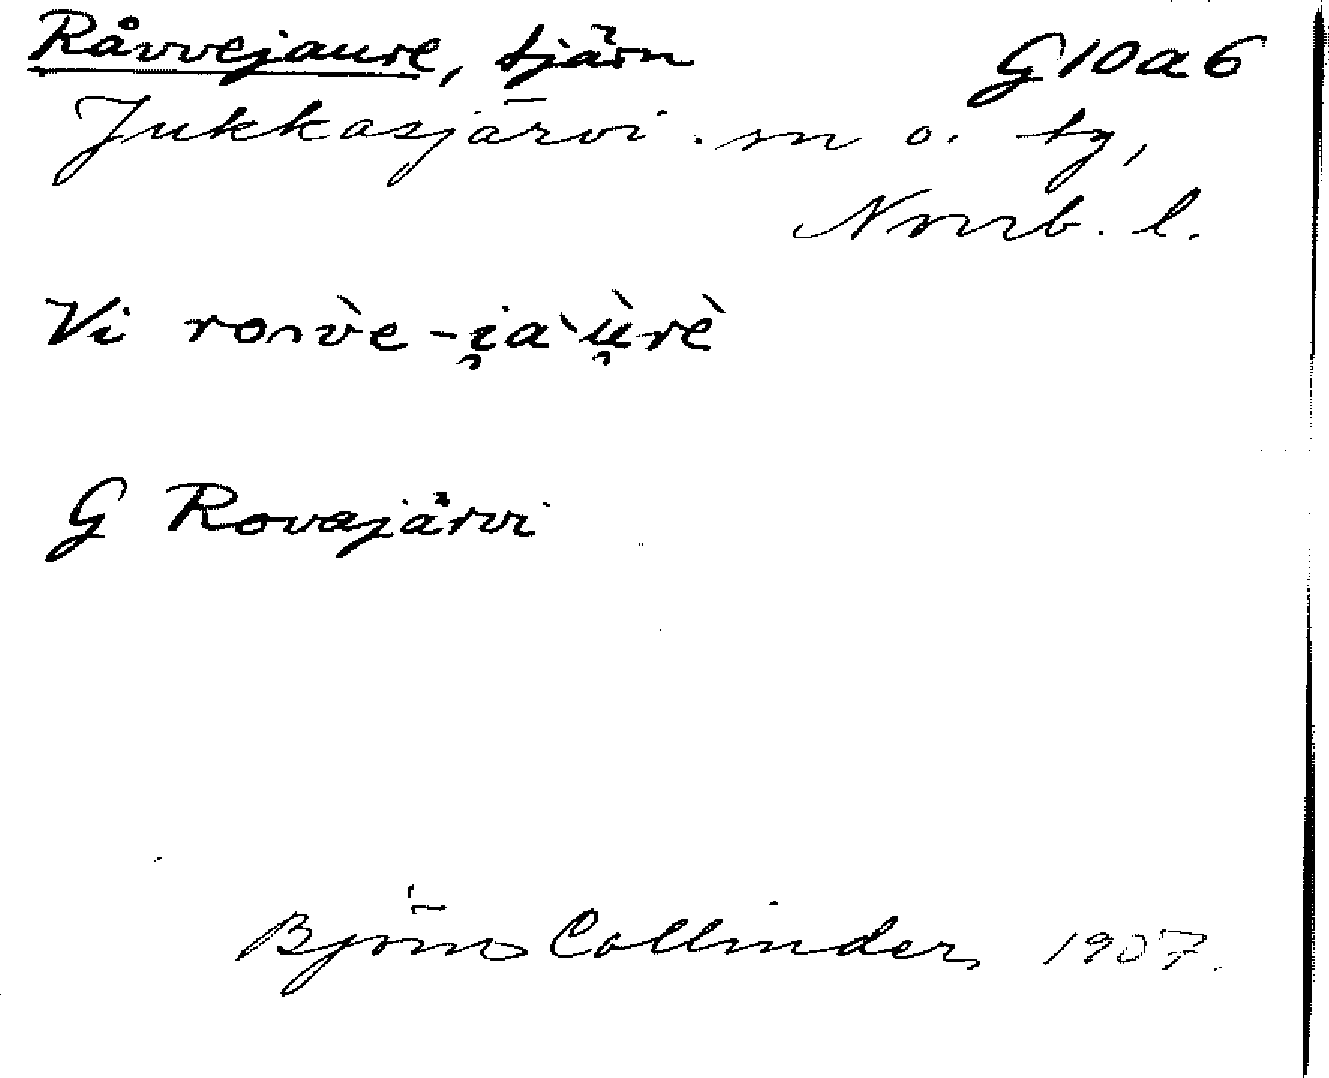 Råvvejaure, tjärn G10a6
Jukkasjärvi. sn o. tg,
Norrb. l.
Vi
G Rovajärvi
Björn Collinder 1907.